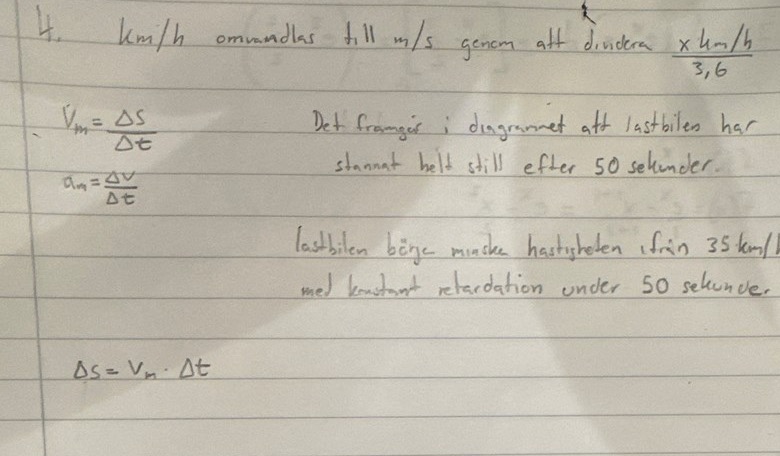 4. km/h omvandlas till m/s genom att dividera x km/h / 3,6
Vm = Δs / Δt
Det framgår i diagrammet att lastbilen har
stannat helt still efter 50 sekunder.
am = Δv / Δt
lastbilen börje minska hastigheten ifrån 35 km/h
med konstant retardation under 50 sekunder.
Δs = Vm · Δt